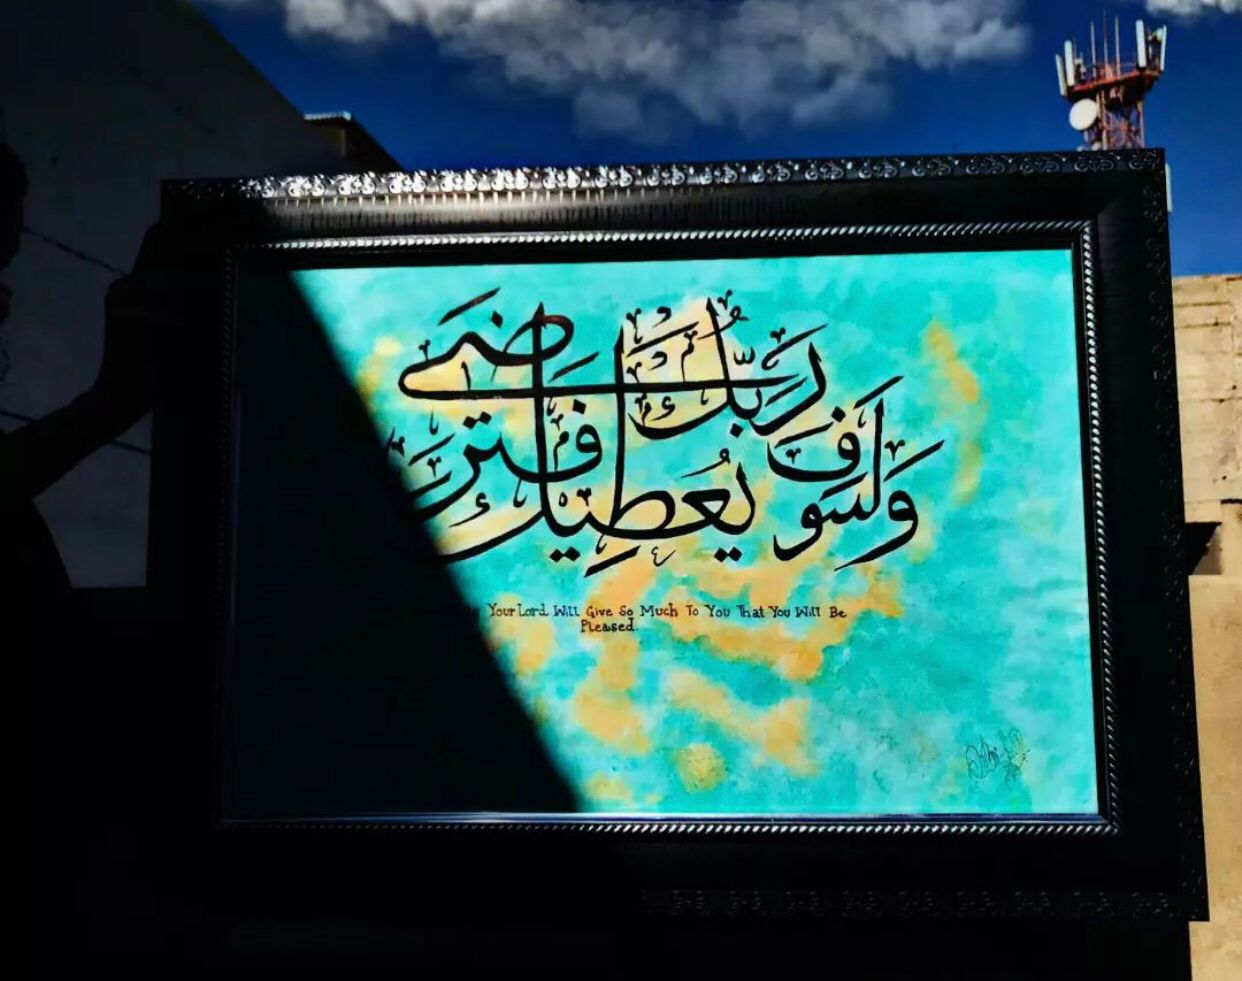 وَلَسَوْفَ يُعْطِيكَ رَبُّكَ فَتَرْضَىٰ
Your Lord Will Give So Much To You That You Will Be
Pleased.